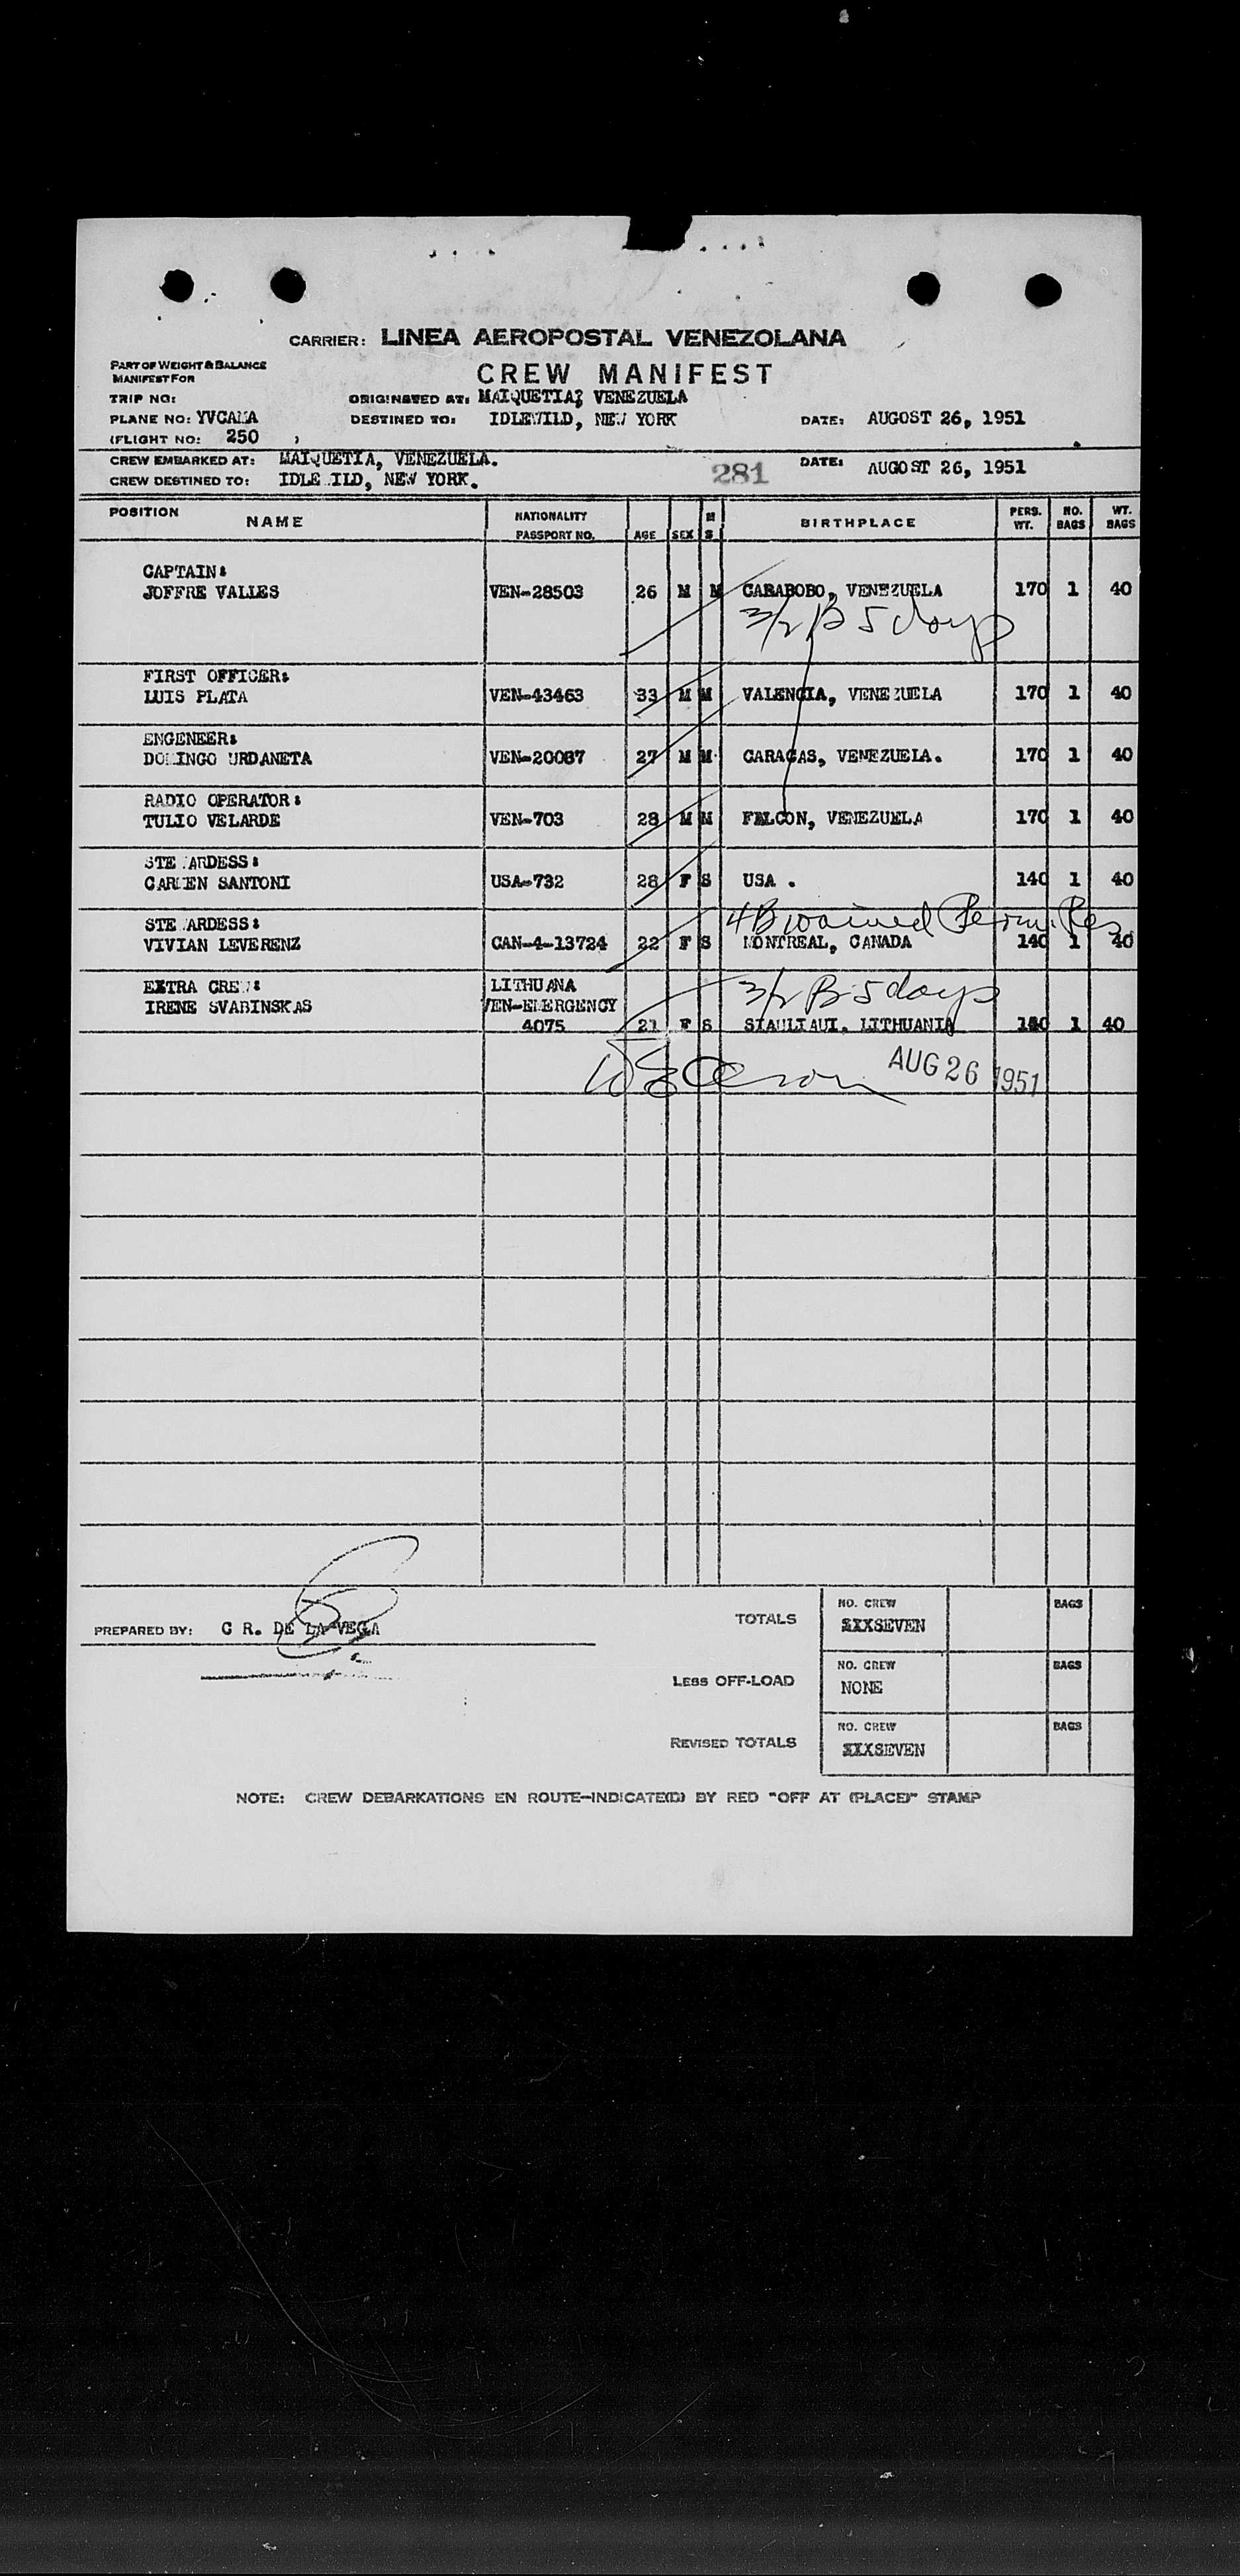 CARRIER: LINEA AEROPOSTAL VENEZOLANA
PART OF WEIGHT & BALANCE
MANIFEST FOR
CREW MANIFEST
TRIP NO: ORIGINATED AT: MAIQUETIA; VENEZUELA
PLANE NO: YVCAMA DESTINED TO: IDLEWILD, NEW YORK DATE: AUGOST 26, 1951
(FLIGHT NO: 250
CREW EMBARKED AT: MAIQUETIA, VENEZUELA. 281 DATE: AUGOST 26, 1951
CREW DESTINED TO: IDLE ILD, NEW YORK.
POSITION NAME NATIONALITY PASSPORT NO. AGE SEX M S BIRTHPLACE PERS. WT. NO. BAGS WT. BAGS
CAPTAIN:
JOFFRE VALLES VEN-28503 26 M M CARABOBO, VENEZUELA 170 1 40
3/2 B 5 days
FIRST OFFICER:
LUIS PLATA VEN-43463 33 M M VALENCIA, VENEZUELA 170 1 40
ENGENEER:
DOMINGO URDANETA VEN-20087 27 M M CARACAS, VENEZUELA. 170 1 40
RADIO OPERATOR:
TULIO VELARDE VEN-703 28 M M FALCON, VENEZUELA 170 1 40
STE ARDESS:
CARMEN SANTONI USA-732 28 F S USA . 140 1 40
4B waived Perm. Res.
STE ARDESS:
VIVIAN LEVERENZ CAN-4-13724 22 F S MONTREAL, CANADA 140 1 40
EXTRA CREW: LITHUANA 3/2 B 5 days
IRENE SVARINSKAS VEN-EMERGENCY
4075 21 F S SIAULIAUI. LITHUANIA 140 1 40
AUG 26 1951
PREPARED BY: C R. DE LA VEGA
TOTALS NO. CREW BAGS
XXXSEVEN
LESS OFF-LOAD NO. CREW BAGS
NONE
REVISED TOTALS NO. CREW BAGS
XXXSEVEN
NOTE: CREW DEBARKATIONS EN ROUTE-INDICATE(D) BY RED "OFF AT (PLACE)" STAMP